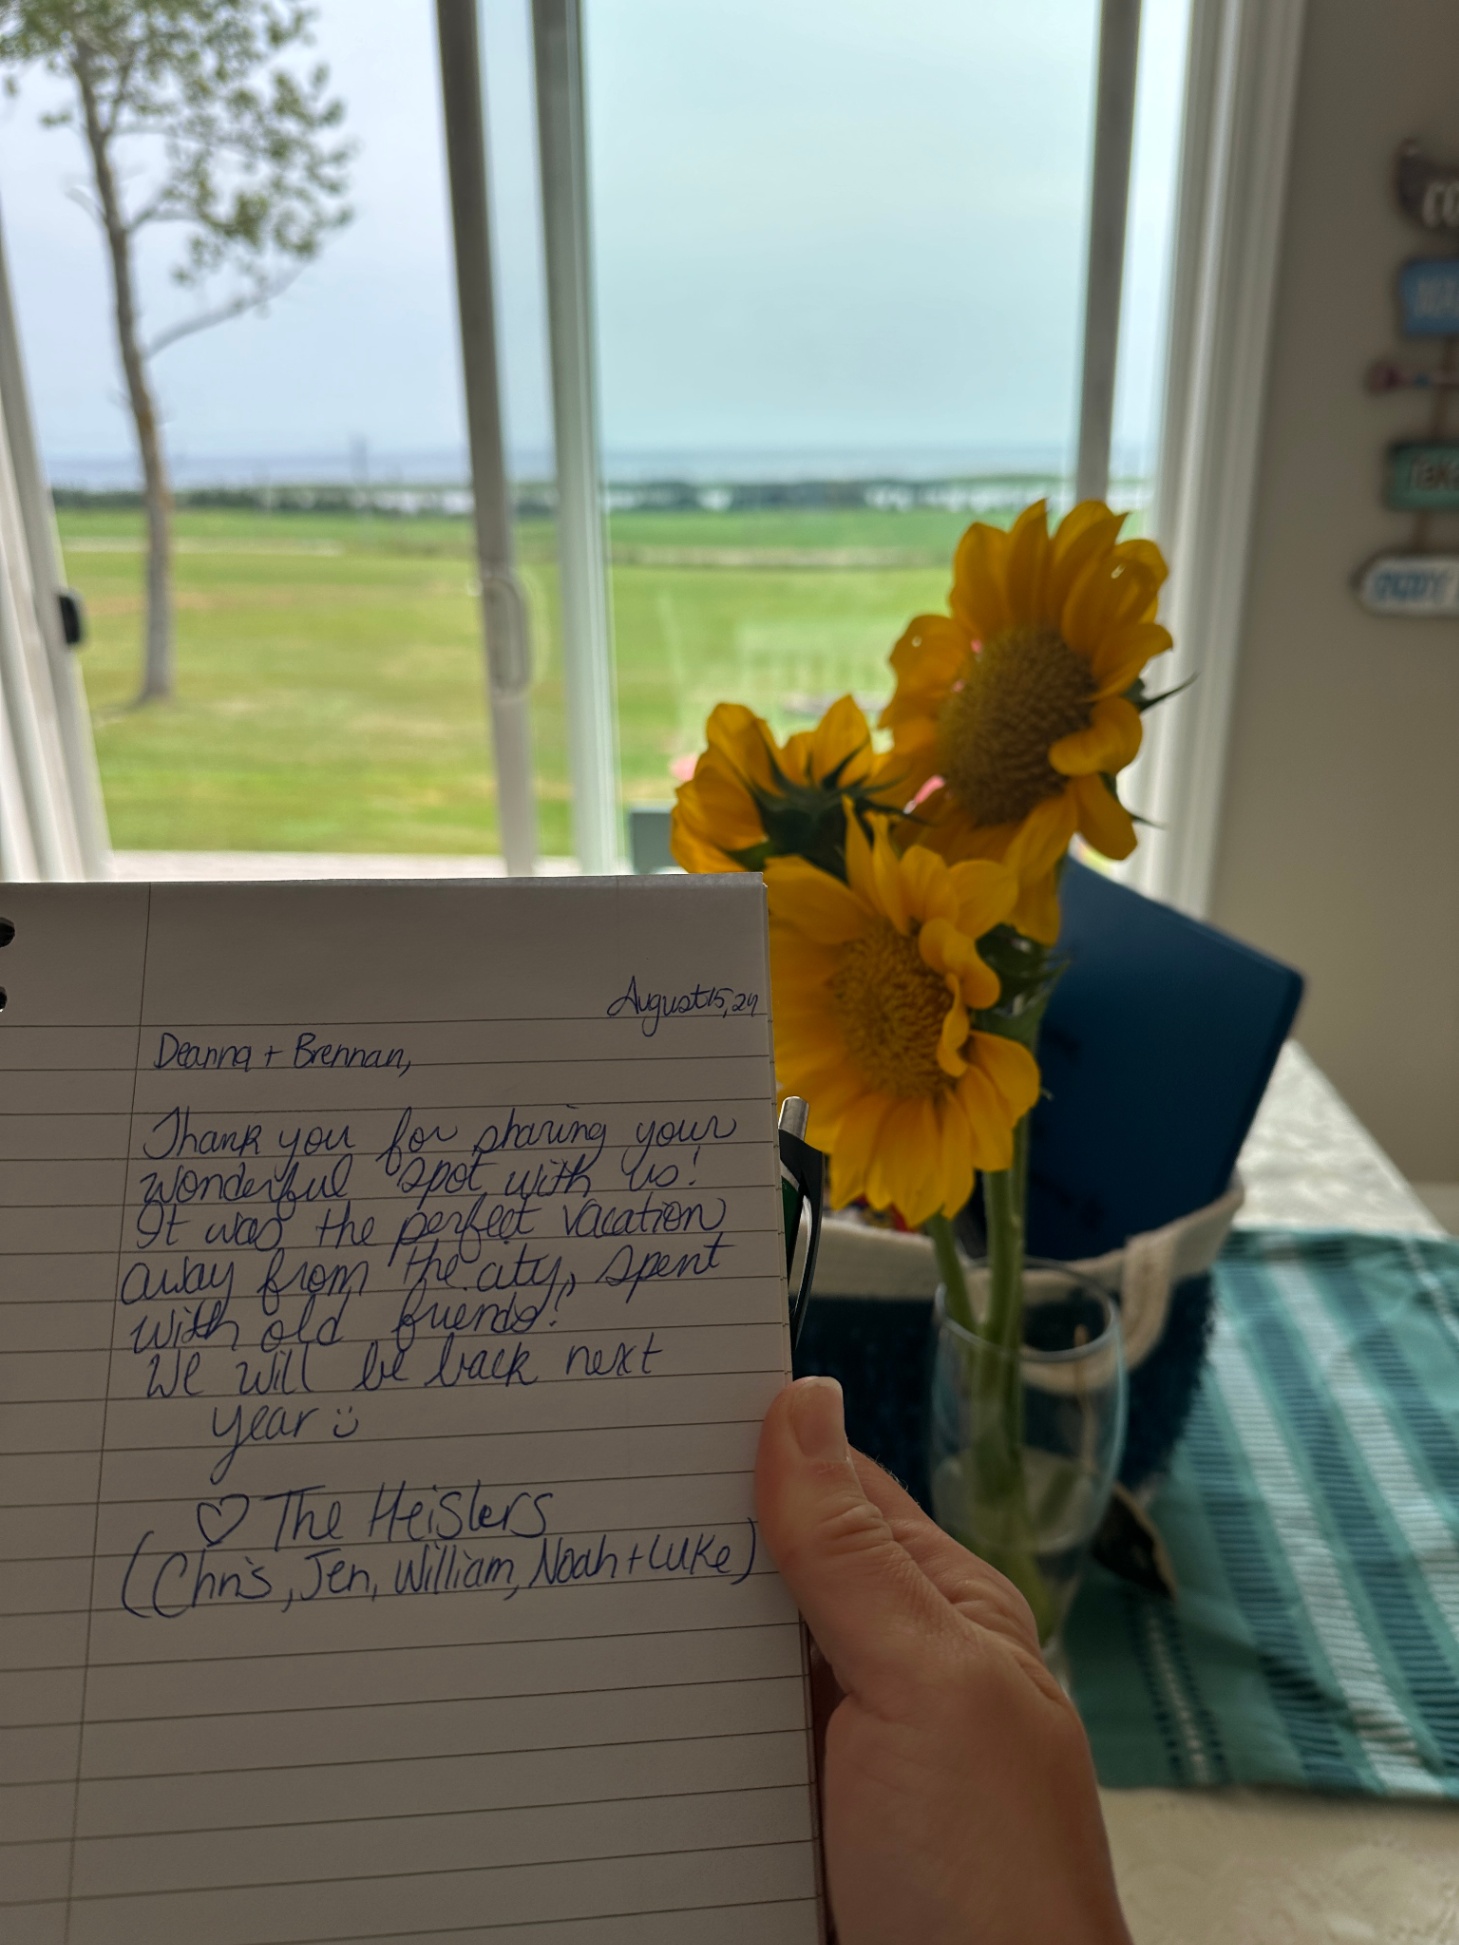 August 15, 24
Deanna + Brennan,
Thank you for sharing your
wonderful spot with us!
It was the perfect vacation
away from the city, spent
with old friends!
We will be back next
year
♡ The Heislers
(Chris, Jen, William, Noah + Luke)